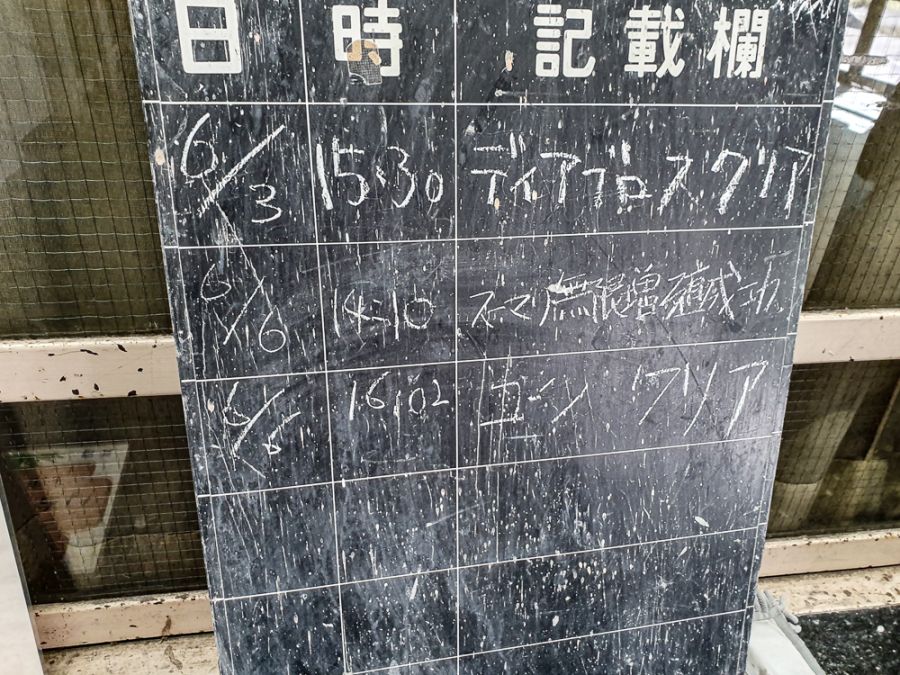 日 時 記載欄
6/3 15:30 ディアブロス クリア
6/6 14:10 スーマリ無限増殖成功
6/5 16:02 ユーシン クリア